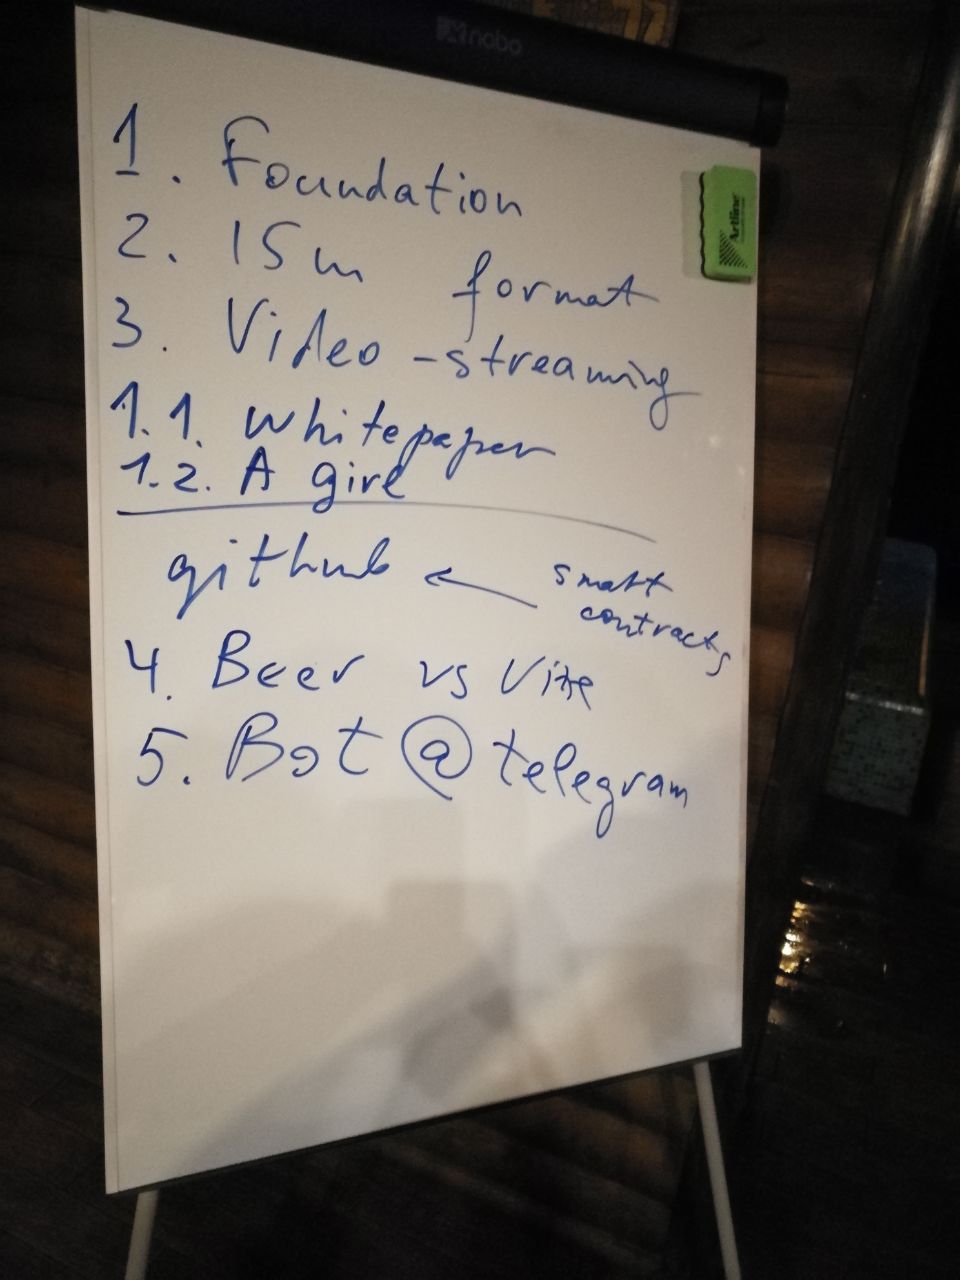 nobo
Artline
1. Foundation
2. 15m format
3. Video-streaming
1.1. Whitepaper
1.2. A girl
github ← smart
contracts
4. Beer vs
5. Bot @ telegram